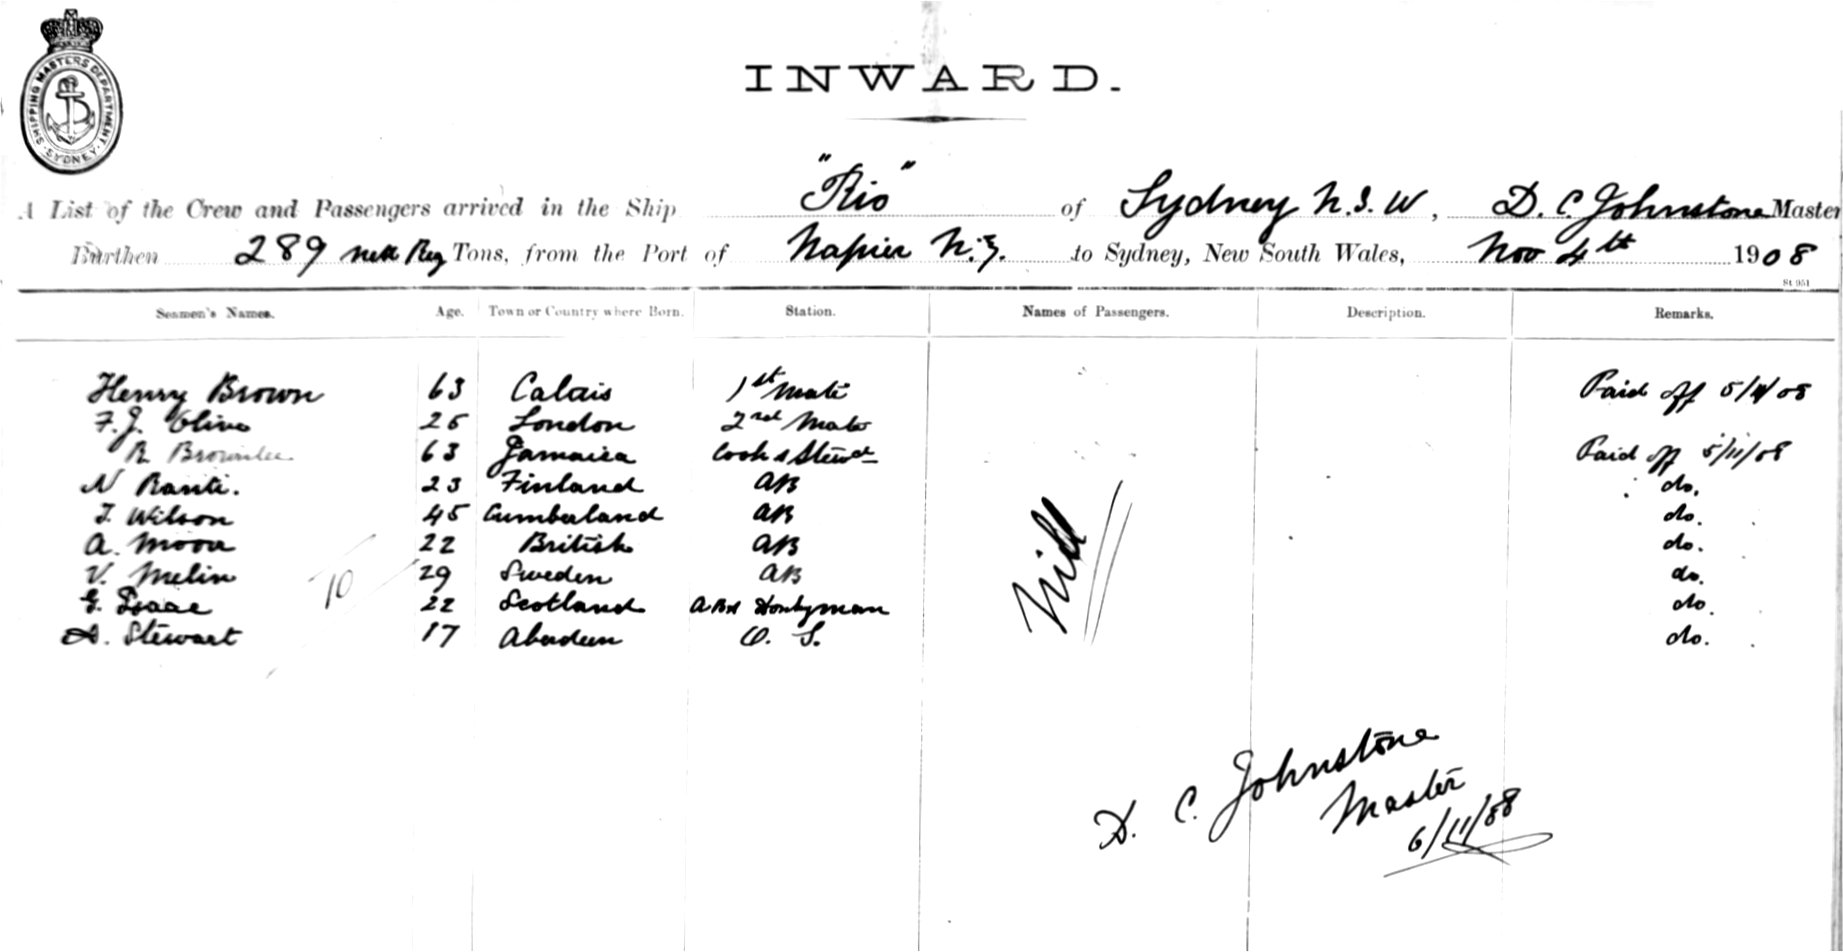 SHIPPING MASTERS DEPARTMENT · SYDNEY ·
INWARD.
A List of the Crew and Passengers arrived in the Ship "Rio" of Sydney N.S.W, D. C. Johnstone Master
Burthen 289 nett Reg Tons, from the Port of Napier N.Z. to Sydney, New South Wales, Nov 4th 1908
St 951
Seamen's Names. Age. Town or Country where Born. Station. Names of Passengers. Description. Remarks.
Henry Brown 63 Calais 1st Mate Paid off 5/11/08
F. J. Olive 25 London 2nd Mate
R Brownlee 63 Jamaica Cook & Stewd Paid off 5/11/08
N Ranti. 23 Finland AB do.
J. Wilson 45 Cumberland AB do.
A. Moor 22 British AB do.
V. Melin 29 Sweden AB do.
G. Isaac 22 Scotland AB & Donkyman do.
A. Stewart 17 Aberdeen O. S. do.
10
Nill
D. C. Johnstone
Master
6/11/08